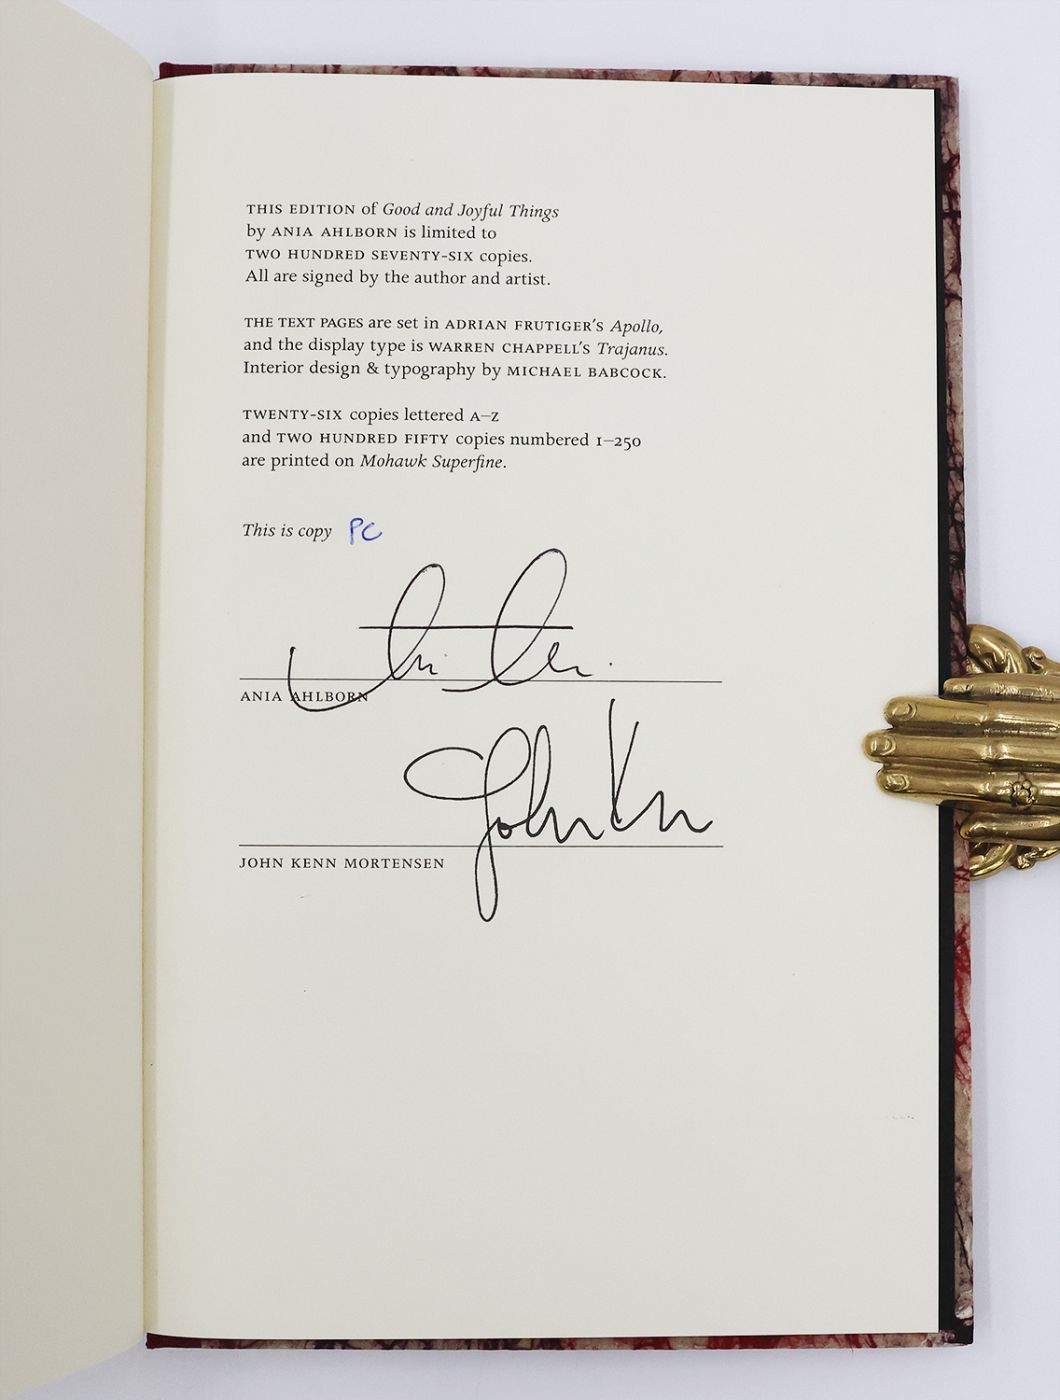 THIS EDITION of Good and Joyful Things
by ANIA AHLBORN is limited to
TWO HUNDRED SEVENTY-SIX copies.
All are signed by the author and artist.
THE TEXT PAGES are set in ADRIAN FRUTIGER'S Apollo,
and the display type is WARREN CHAPPELL'S Trajanus.
Interior design & typography by MICHAEL BABCOCK.
TWENTY-SIX copies lettered A–Z
and TWO HUNDRED FIFTY copies numbered 1–250
are printed on Mohawk Superfine.
This is copy PC
ANIA AHLBORN
John Kenn
JOHN KENN MORTENSEN